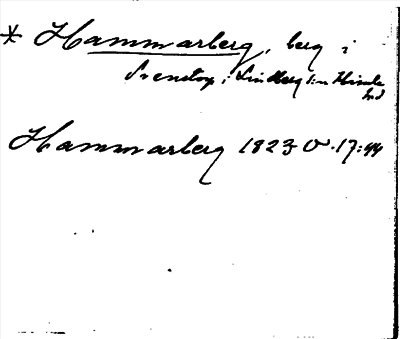 * Hammarberg, berg i
Svenstorp i Lindberg sn Himle
hd
Hammarberg 1823 O.17:44